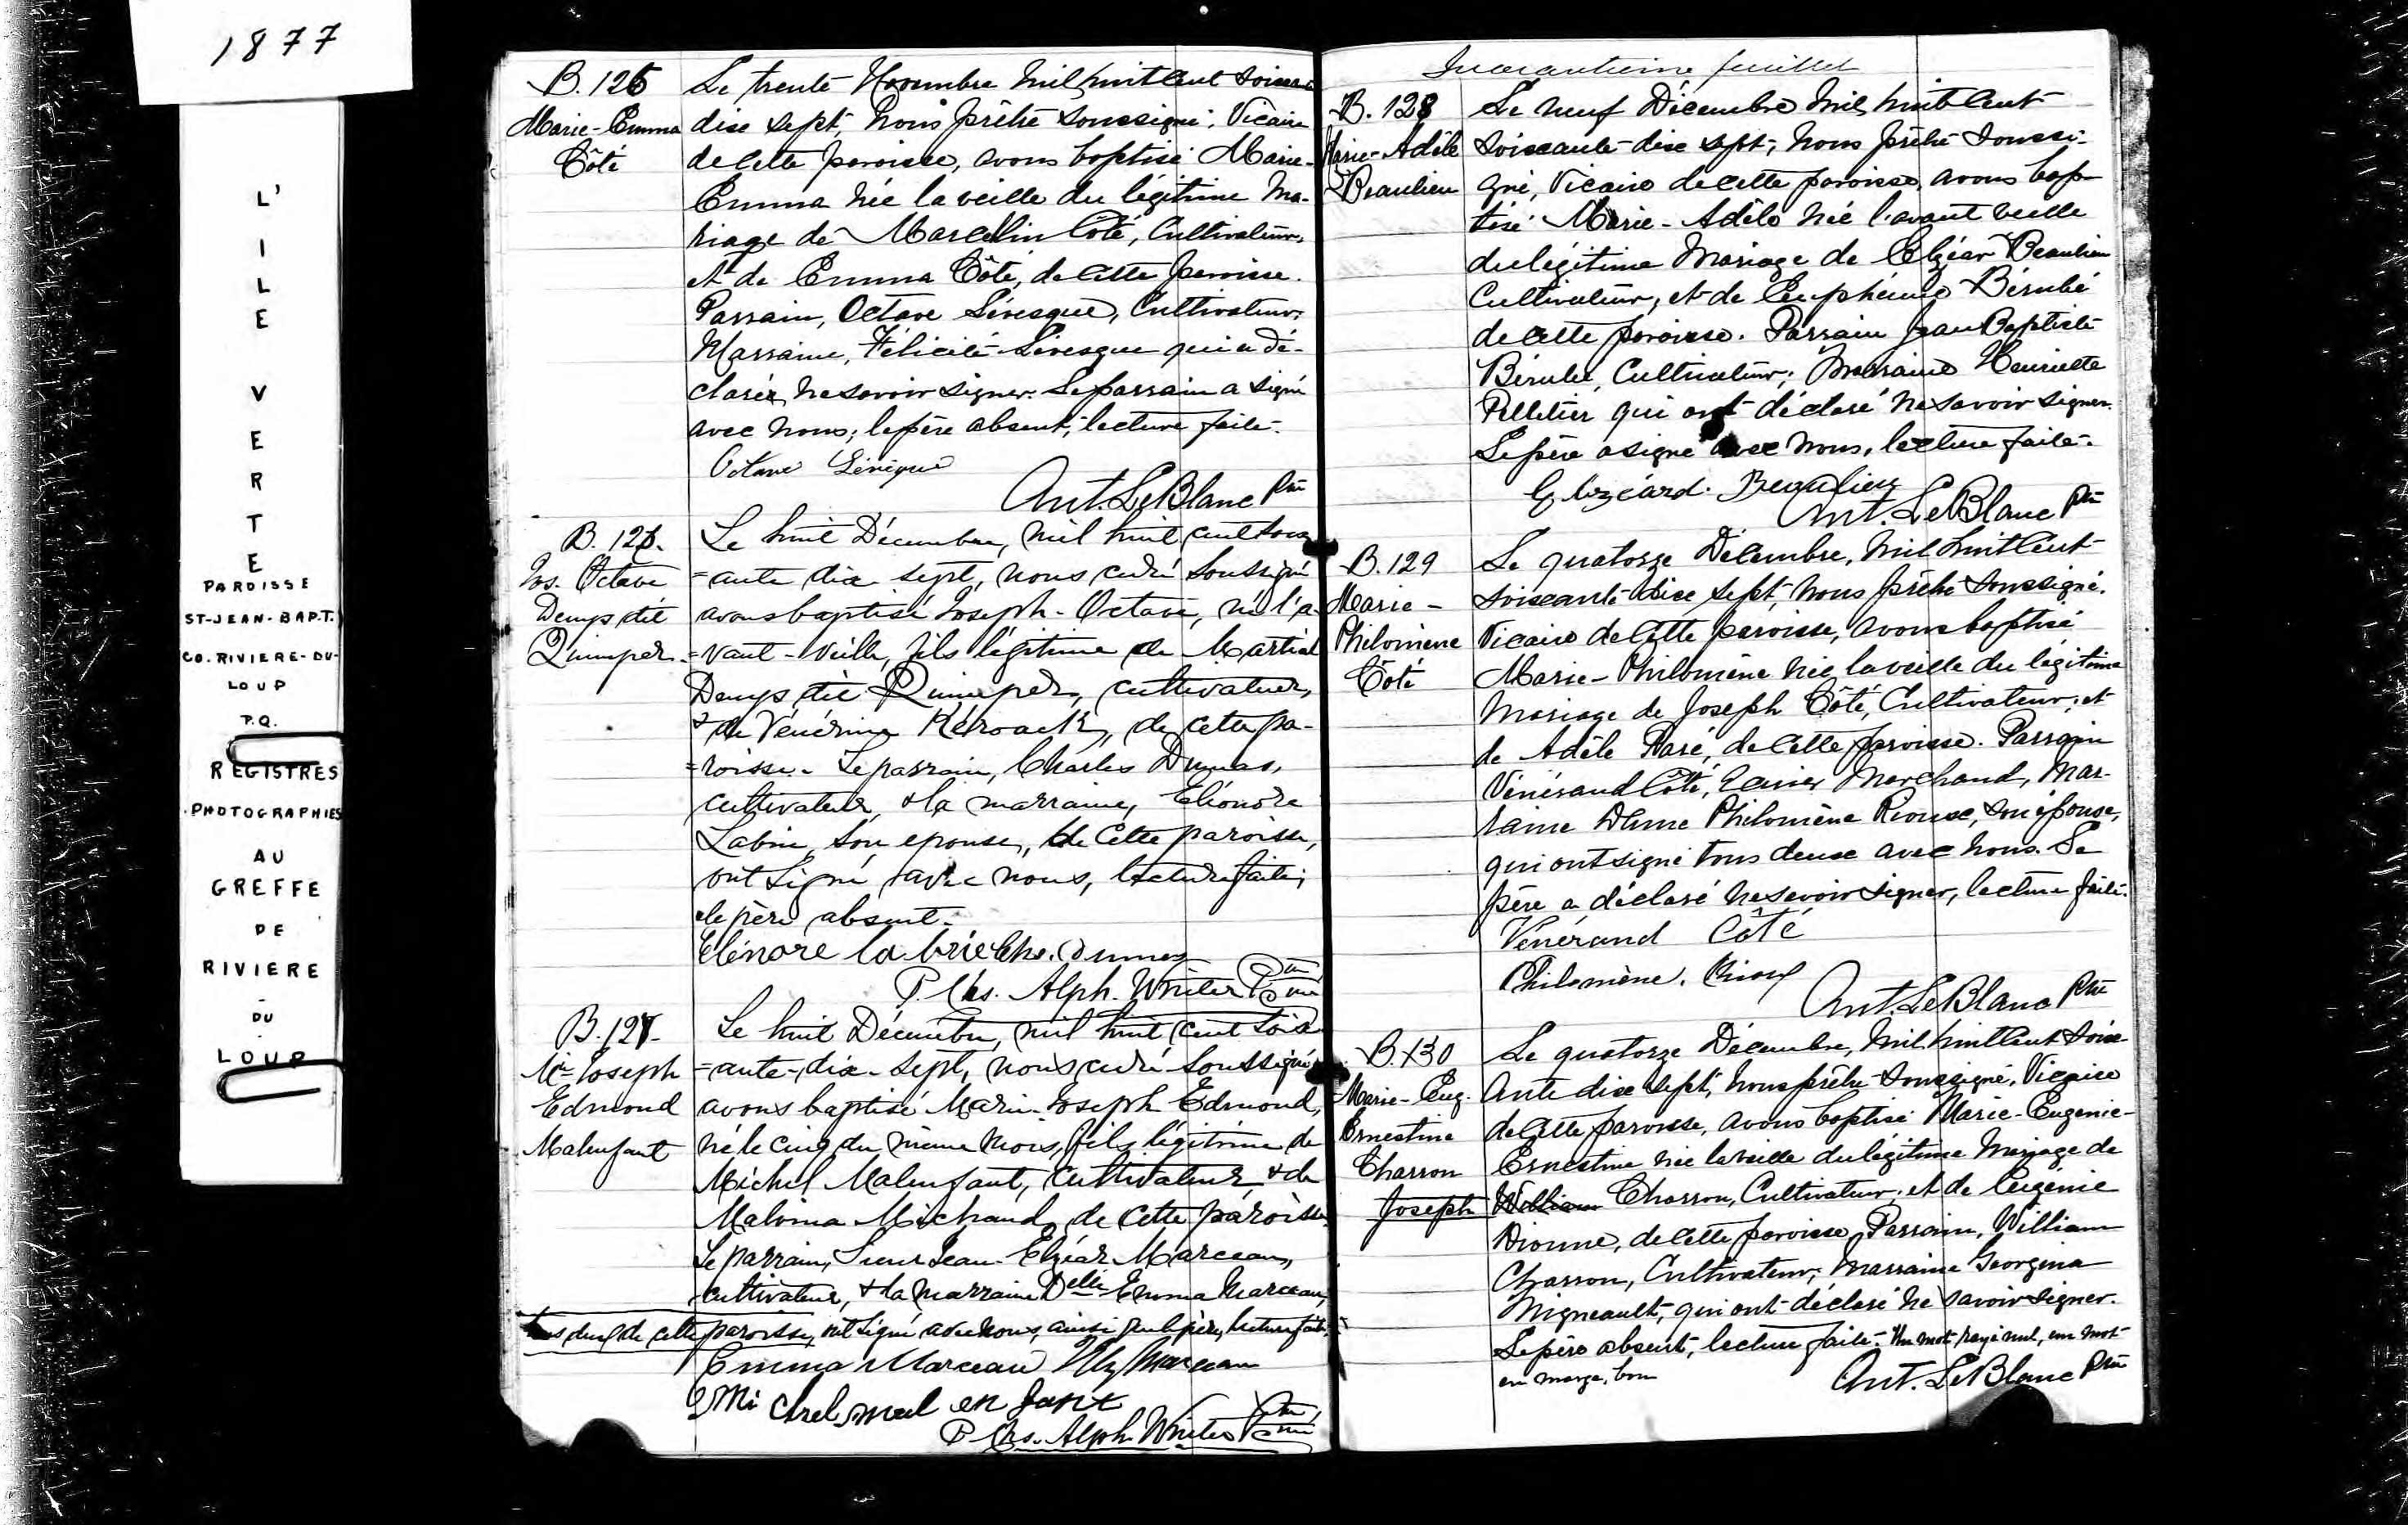 1877
L'
I
L
E
V
E
R
T
E
PAROISSE
ST-JEAN-BAPT.
CO. RIVIERE-DU-
LOUP
P.Q.
REGISTRES
PHOTOGRAPHIES
AU
GREFFE
DE
RIVIERE
-
DU
-
LOUP
B. 125
Marie-Emma
Côté
Le trente Novembre mil huit cent soixante
dix sept, nous prêtre soussigné, Vicaire
de cette paroisse, avons baptisé Marie-
Emma née la veille du légitime ma-
riage de Marcellin Côté, Cultivateur,
et de Emma Côté, de cette paroisse.
Parrain, Octave Lévesque, Cultivateur,
Marraine, Félicité Lévesque qui a dé-
claré ne savoir signer. Le parrain a signé
avec nous; le père absent, lecture faite.
Octave Lévêque
Ant. LeBlanc Ptre
B. 126.
Jos. Octave
Denys dit
Quimper.
Le huit Décembre, mil huit cent soix
=ante dix sept, nous curé soussigné
avons baptisé Joseph-Octave, né l'a-
=vant-veille, fils légitime de Martial
Denys dit Quimper, cultivateur,
& de Vénérine Kéroack, de cette pa-
=roisse. Le parrain, Charles Dumas,
cultivateur, & la marraine, Eléonore
Labrie, son epouse, de cette paroisse,
ont signé avec nous, lecture faite;
le père absent.
Elénore labrie Chs. Dumas
P. Chs. Alph. Winter Ptre Curé
B. 127.
Me Joseph
Edmond
Malenfant
Le huit Décembre, mil huit cent soix
=ante-dix-sept, nous curé soussigné
avons baptisé Marie-Joseph Edmond,
né le cinq du même mois, fils légitime de
Michel Malenfant, cultivateur, & de
Malvina Michaud, de cette paroisse.
Le parrain, Sieur Jean-Elzéar Marceau,
cultivateur, & la marraine Delle Emma Marceau,
tous deux de cette paroisse, ont signé avec nous, ainsi que le père, lecture faite.
Emma Marceau Elz Marceau
Mi chel mal en fant
P. Chs. Alph. Winter Ptre Curé
Quarantième feuillet
B. 128
Marie-Adèle
Beaulieu
Le neuf Décembre mil huit cent
soixante-dix sept, nous prêtre soussi-
gné, Vicaire de cette paroisse, avons bap-
tisé Marie-Adèle née l'avant veille
du légitime Mariage de Elzéar Beaulieu
Cultivateur, et de Euphémie Bérubé
de cette paroisse. Parrain Jean Baptiste
Bérubé, Cultivateur; Marraine Henriette
Pelletier qui ont déclaré ne savoir signer.
Le père a signé avec nous, lecture faite.
Elzéard. Beaulieu
Ant. LeBlanc Ptre
B. 129
Marie-
Philomène
Côté
Le quatorze Décembre, mil huit cent
soixante-dix sept, nous prêtre soussigné,
Vicaire de cette paroisse, avons baptisé
Marie-Philomène née la veille du légitime
mariage de Joseph Côté, Cultivateur, et
de Adèle Paré, de cette paroisse. Parrain
Vénérand Côté, Marchand, Mar-
raine Dame Philomène Rioux, son épouse,
qui ont signé tous deux avec nous. Le
père a déclaré ne savoir signer, lecture faite.
Vénérand Côté
Philomène. Rioux
Ant. LeBlanc Ptre
B. 130
Marie-Eug.
Ernestine
Charron
Joseph
Le quatorze Décembre, mil huit cent soix-
ante dix sept, nous prêtre soussigné, Vicaire
de cette paroisse, avons baptisé Marie-Eugénie-
Ernestine née la veille du légitime mariage de
William Charron, Cultivateur, et de Eugénie
Dionne, de cette paroisse, Parrain, William
Charron, Cultivateur, Marraine Georgina
Migneault, qui ont déclaré ne savoir signer.
Le père absent, lecture faite. Un mot rayé nul, un mot
en marge, bon
Ant. LeBlanc Ptre